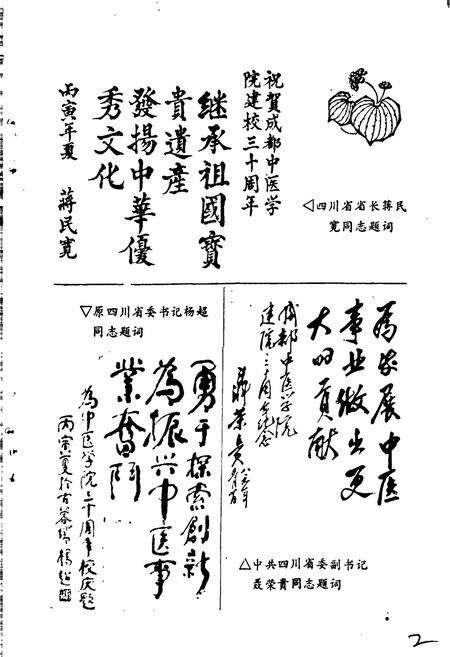 祝賀成都中医学
院建校三十周年
继承祖國寳
貴遺産
發揚中華優
秀文化
丙寅年夏 蔣民寬
◁四川省省长蒋民
宽同志题词
▽原四川省委书记杨超
同志题词
勇于探索創新
為振兴中医事
業奮鬥
為中医学院三十周年校庆题
丙寅夏於古蓉城 楊超
為发展中医
事业做出更
大的貢献
成都中医学院
建院三十周年纪念
聂荣贵
△中共四川省委副书记
聂荣贵同志题词
2